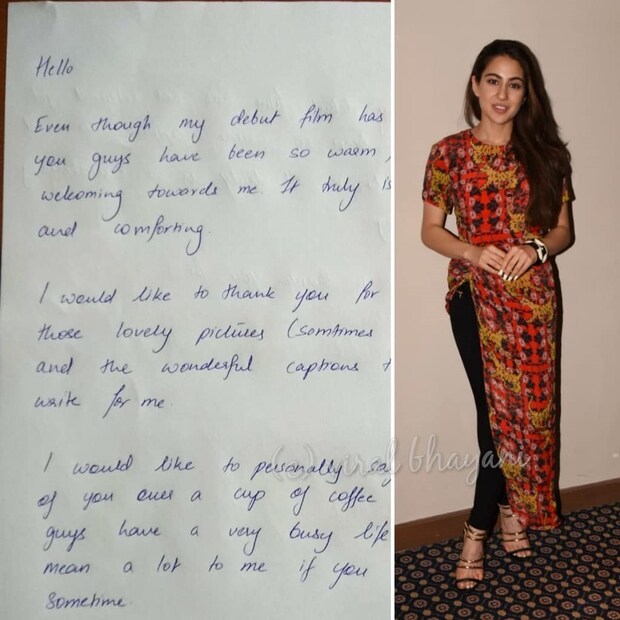 Hello
Even though my debut film has
you guys have been so warm,
welcoming towards me. It truly is
and comforting
I would like to thank you for
those lovely pictures (somtimes
and the wonderful captions t
write for me.
I would like to personally say
of you over a cup of coffee
guys have a very busy life
mean a lot to me if you
sometime.
(c) viral bhayani